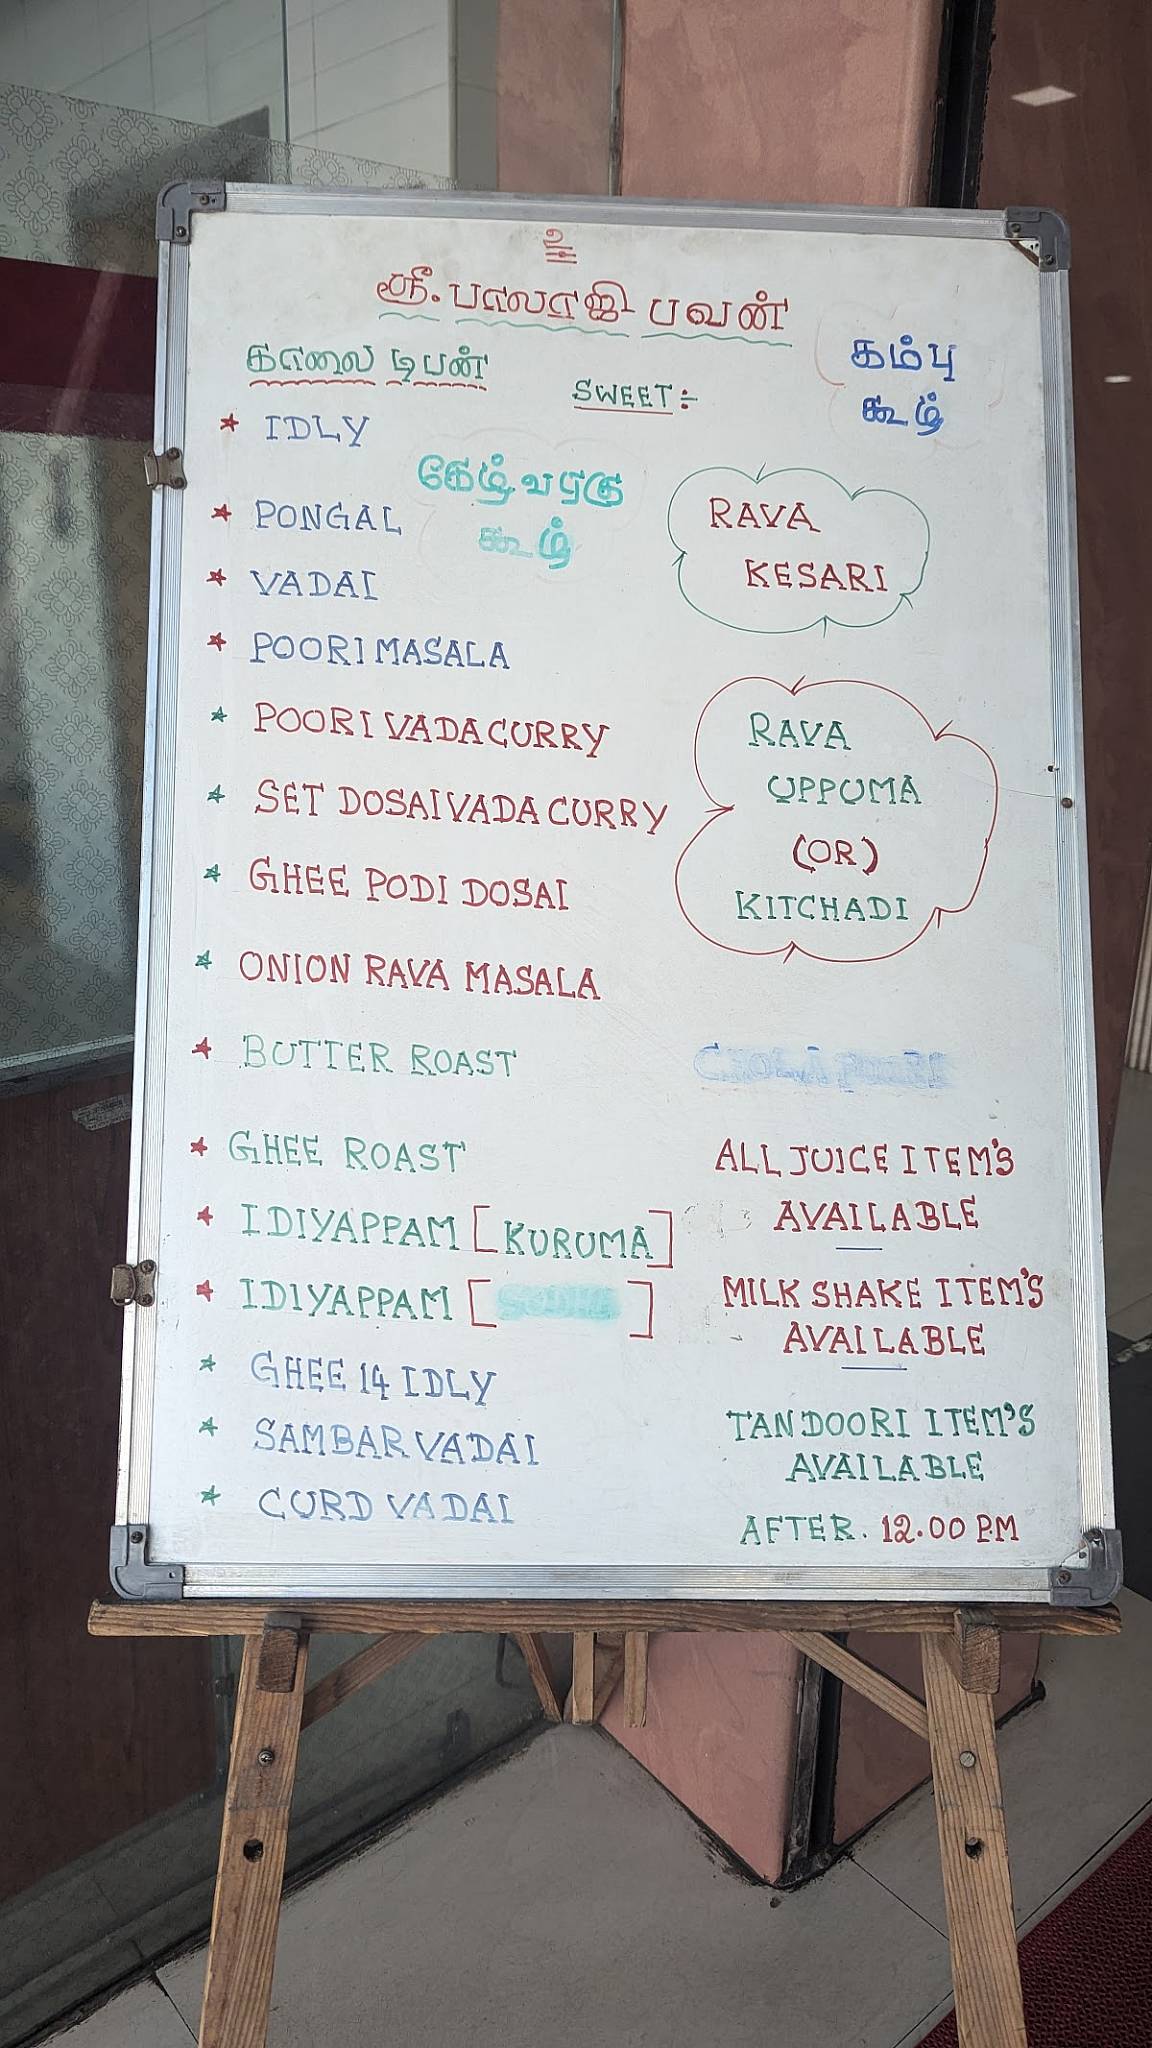 உ
ஸ்ரீ. பாலாஜி பவன்
காலை டிபன்
SWEET:-
கம்பு
கூழ்
★ IDLY
கேழ்வரகு
கூழ்
★ PONGAL
★ VADAI
★ POORI MASALA
★ POORI VADACURRY
★ SET DOSAI VADA CURRY
★ GHEE PODI DOSAI
★ ONION RAVA MASALA
★ BUTTER ROAST
★ GHEE ROAST
★ IDIYAPPAM [KURUMA]
★ IDIYAPPAM [ ]
★ GHEE 14 IDLY
★ SAMBAR VADAI
★ CURD VADAI
RAVA
KESARI
RAVA
UPPUMA
(OR)
KITCHADI
CHOLA POORI
ALL JUICE ITEM'S
AVAILABLE
MILK SHAKE ITEM'S
AVAILABLE
TANDOORI ITEM'S
AVAILABLE
AFTER. 12.00 P.M